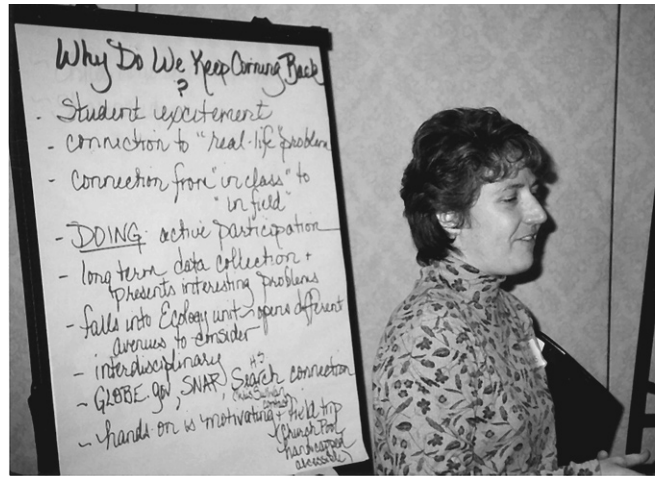 Why Do We Keep Coming Back
?
- Student excitement
- connection to "real-life" problem
- connection from "in class" to
"in field"
- DOING active participation
- long term data collection +
presents interesting problems
- falls into Ecology unit - opens different
avenues to consider
- interdisciplinary
HS
- GLOBE.gov, SNAR, Search connection
- hands on is motivating + field trip
(Church Pool
handicapped
accessible)